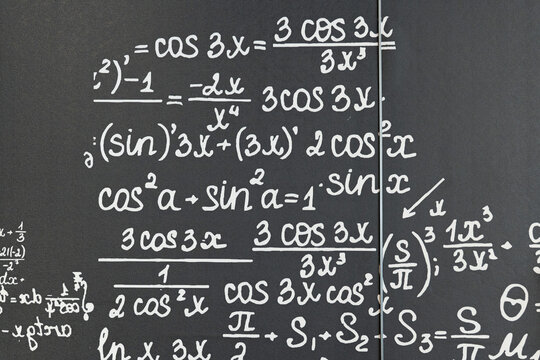 ' = cos 3x = 3 cos 3x / 3x³
²)' - 1 / = -2x / x⁴ 3cos 3x.
(sin)' 3x + (3x)' 2 cos² x
cos² a + sin² a = 1 · sin x
3 cos 3x / 1 / 2 cos² x
3 cos 3x / 3x³ (S / π)³ ; 1x³ / 3x² +
cos 3x cos² x
π / 2 + S₁ + S₂ - S₃ = S / π
ln x 3x
x + 1 / 3
21(-2) / -2
dx +
Θ =